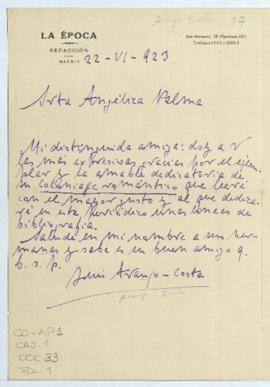 Araujo Costa
37
LA ÉPOCA
REDACCIÓN
MADRID
San Bernardo, 78
22-VI-923
Srta Angélica Palma
Mi distinguida amiga: doy a V
las más expresivas gracias por el ejem-
plar y la amable dedicatoria de
su Coloniaje romántico que leeré
con el mayor gusto y al que dedica-
ré en este periódico unas líneas de
bibliografía.
Salude en mi nombre a sus her-
manas y sabe es su buen amigo q.
b. s. p.
Luis Araujo-Costa
Araujo-Costa
CO-AP1
CAJ. 1
DOC 33
FOL. 1